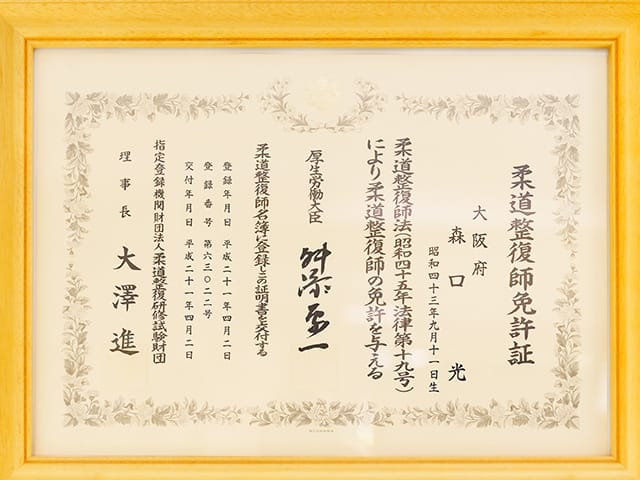 柔道整復師免許証
大阪府
森口 光
昭和四十三年九月十一日生
柔道整復師法(昭和四十五年法律第十九号)
により柔道整復師の免許を与える
厚生労働大臣 舛添要一
柔道整復師名簿に登録しこの証明書を交付する
登録年月日 平成二十一年四月二日
登録番号 第六三〇二二号
交付年月日 平成二十一年四月二日
指定登録機関財団法人柔道整復研修試験財団
理事長 大澤進